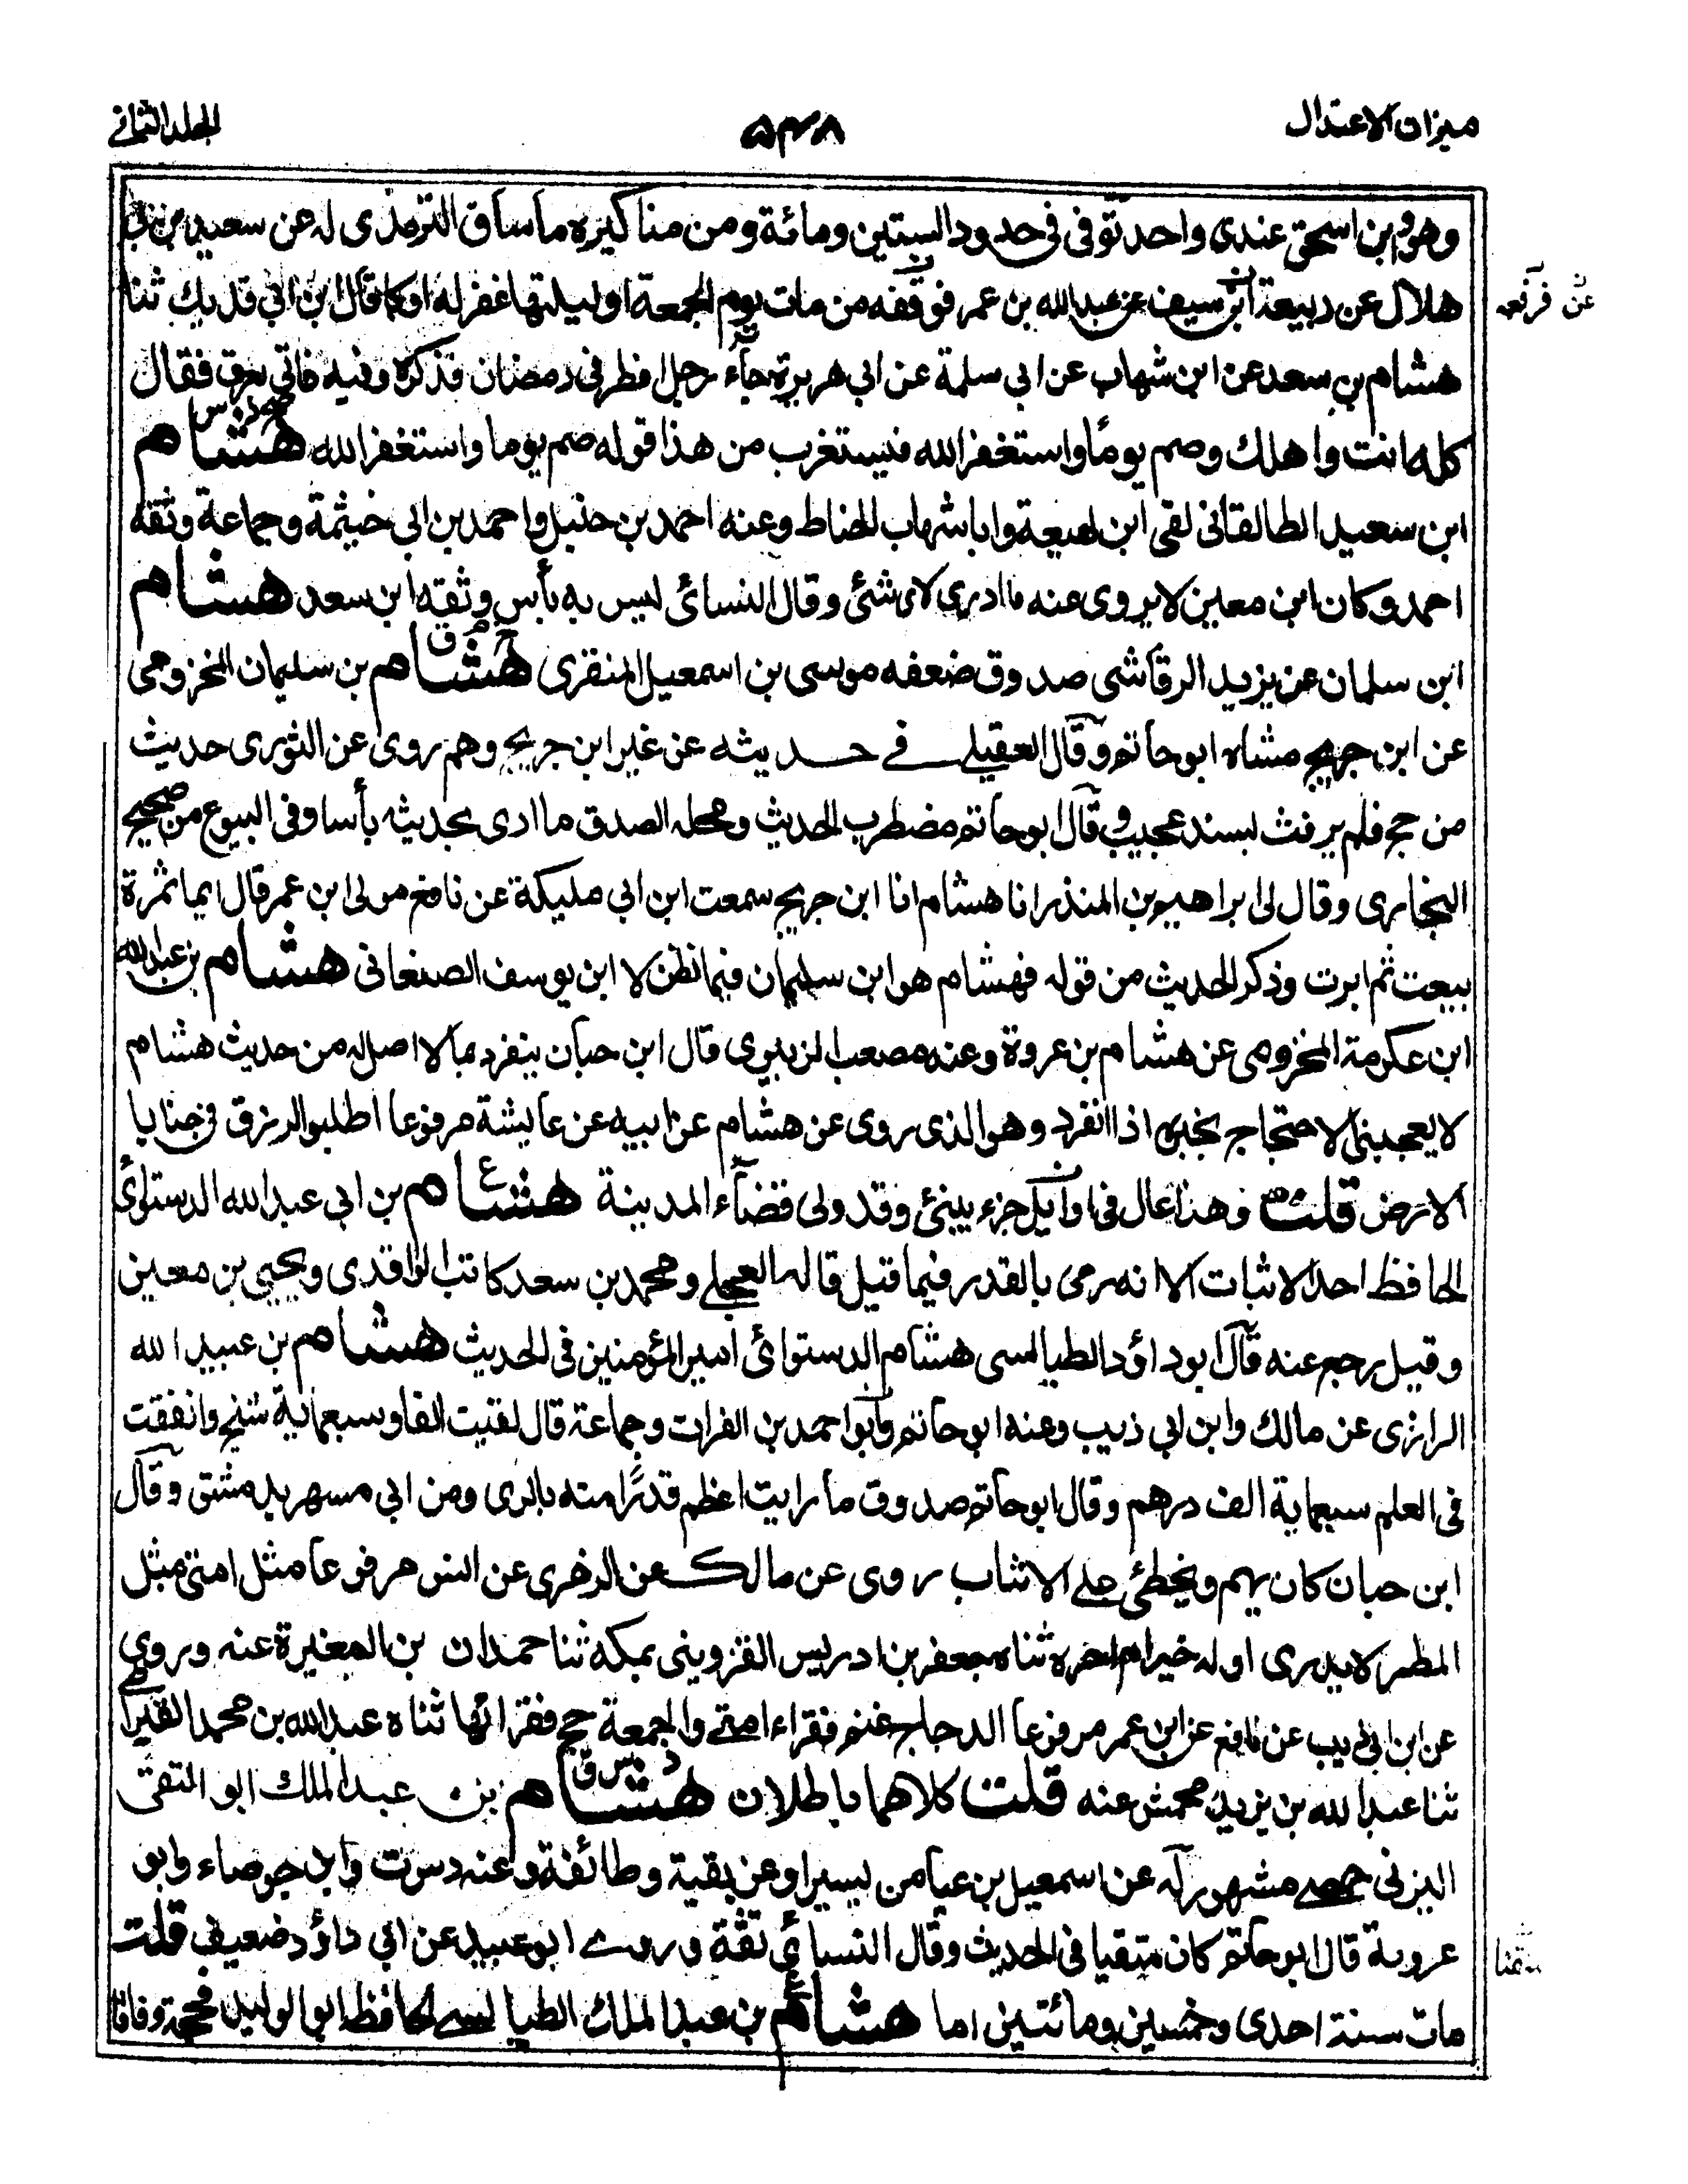 ميزان الاعتدال
٥٣٨
المجلد الثانى
وهو وابن اسحق عندى واحد توفى فى حدود الستين ومائة ومن مناكيره ما ساق الترمذى له عن سعيد بن ابى
هلال عن ربيعة ابن سيف عن عبد الله بن عمر فوقفه من مات يوم الجمعة او ليلتها غفر له او كما قال ابن ابى فديك ثنا
عن فرفعه
هشام بن سعد عن ابن شهاب عن ابى سلمة عن ابى هريرة جاء رجل افطر فى رمضان فذكره وفيه فاتى بعرق فقال
كله انت واهلك وصم يومًا واستغفر الله فيستغرب من هذا قوله صم يوما واستغفر الله هشام
ابن سعيد الطالقانى لقى ابن لهيعة وابا شهاب الحناط وعنه احمد بن حنبل واحمد بن ابى خيثمة وجماعة وثقه
احمد وكان ابن معين لا يروى عنه ما ادرى لاى شئى وقال النسائى ليس به بأس وثقه ابن سعد هشام
ابن سلمان عن يزيد الرقاشى صدوق ضعفه موسى بن اسمعيل المنقرى هشام بن سليمان المخزومى
عن ابن جريج مشاه ابو حاتم وقال العقيلى فى حديثه عن غير ابن جريج وهم روى عن الثورى حديث
من حج فلم يرفث بسند عجيب وقال ابو حاتم مضطرب الحديث ومحله الصدق ما ارى بحديثه بأسا وفى البيوع من صحيح
البخارى وقال لى ابراهيم بن المنذر انا هشام انا ابن جريج سمعت ابن ابى مليكة عن نافع مولى ابن عمر قال ايما ثمرة
بيعت ثم ابرت وذكر الحديث من قوله فهشام هو ابن سليمان فيما نظن لا ابن يوسف الصنعانى هشام بن عبد الله
ابن عكرمة المخزومى عن هشام بن عروة وعنه مصعب الزبيرى قال ابن حبان ينفرد بما لا اصل له من حديث هشام
لا يعجبنى الاحتجاج بخبره اذا انفرد وهو الذى روى عن هشام عن ابيه عن عايشة مرفوعا اطلبوا الرزق فى خبايا
الارض قلت وهذا عال فى اوايل جزء بيبى وقد ولى قضاء المدينة هشام بن ابى عبد الله الدستوائى
الحافظ احد الاثبات الا انه رمى بالقدر فيما قيل قاله العجلى ومحمد بن سعد كاتب الواقدى ويحيى بن معين
وقيل رجع عنه قال ابو داؤد الطيالسى هشام الدستوائى امير المؤمنين فى الحديث هشام بن عبيد الله
الرازى عن مالك وابن ابى ذيب وعنه ابو حاتم وابو احمد بن الفرات وجماعة قال لقيت الفا وسبعماية شيخ وانفقت
فى العلم سبعماية الف درهم وقال ابو حاتم صدوق ما رايت اعظم قدرًا منه بالرى ومن ابى مسهر بدمشق وقال
ابن حبان كان يهم ويخطئى على الاثبات روى عن مالك عن الزهرى عن انس مرفوعا مثل امتى مثل
المطر لا يدرى اوله خير ام اخره ثناه جعفر بن ادريس القزوينى بمكة ثنا حمدان بن المغيرة عنه وروى
عن ابن ابى ذيب عن نافع عن ابن عمر مرفوعا الدجاج غنم فقراء امتى والجمعة حج فقرائها ثناه عبد الله بن محمد القيراطى
ثنا عبد الله بن يزيد محمش عنه قلت كلاهما باطلان هشام بن عبد الملك ابو التقى
اليزنى حمصى مشهور له عن اسمعيل بن عياش يسيرا وعن بقية وطائفة وعنه دس ق وابن جوصاء وابو
عروبة قال ابو حاتم كان متقيا فى الحديث وقال النسائى ثقة وروى ابو عبيد عن ابى داؤد ضعيف قلت
متقنا
مات سنة احدى وخمسين ومائتين اما هشام بن عبد الملك الطيالسى الحافظ ابو الوليد فحجة وفاقا